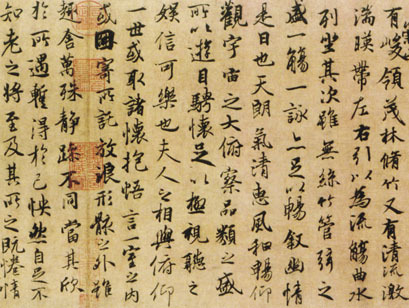 有峻領茂林脩竹又有清流激
湍暎帶左右引以為流觴曲水
列坐其次雖無絲竹管弦之
盛一觴一詠亦足以暢叙幽情
是日也天朗氣清惠風和暢仰
觀宇宙之大俯察品類之盛
所以遊目騁懷足以極視聽之
娛信可樂也夫人之相與俯仰
一世或取諸懷抱悟言一室之內
或因寄所託放浪形骸之外雖
趣舍萬殊靜躁不同當其欣
於所遇暫得於己怏然自足不
知老之將至及其所之既惓情